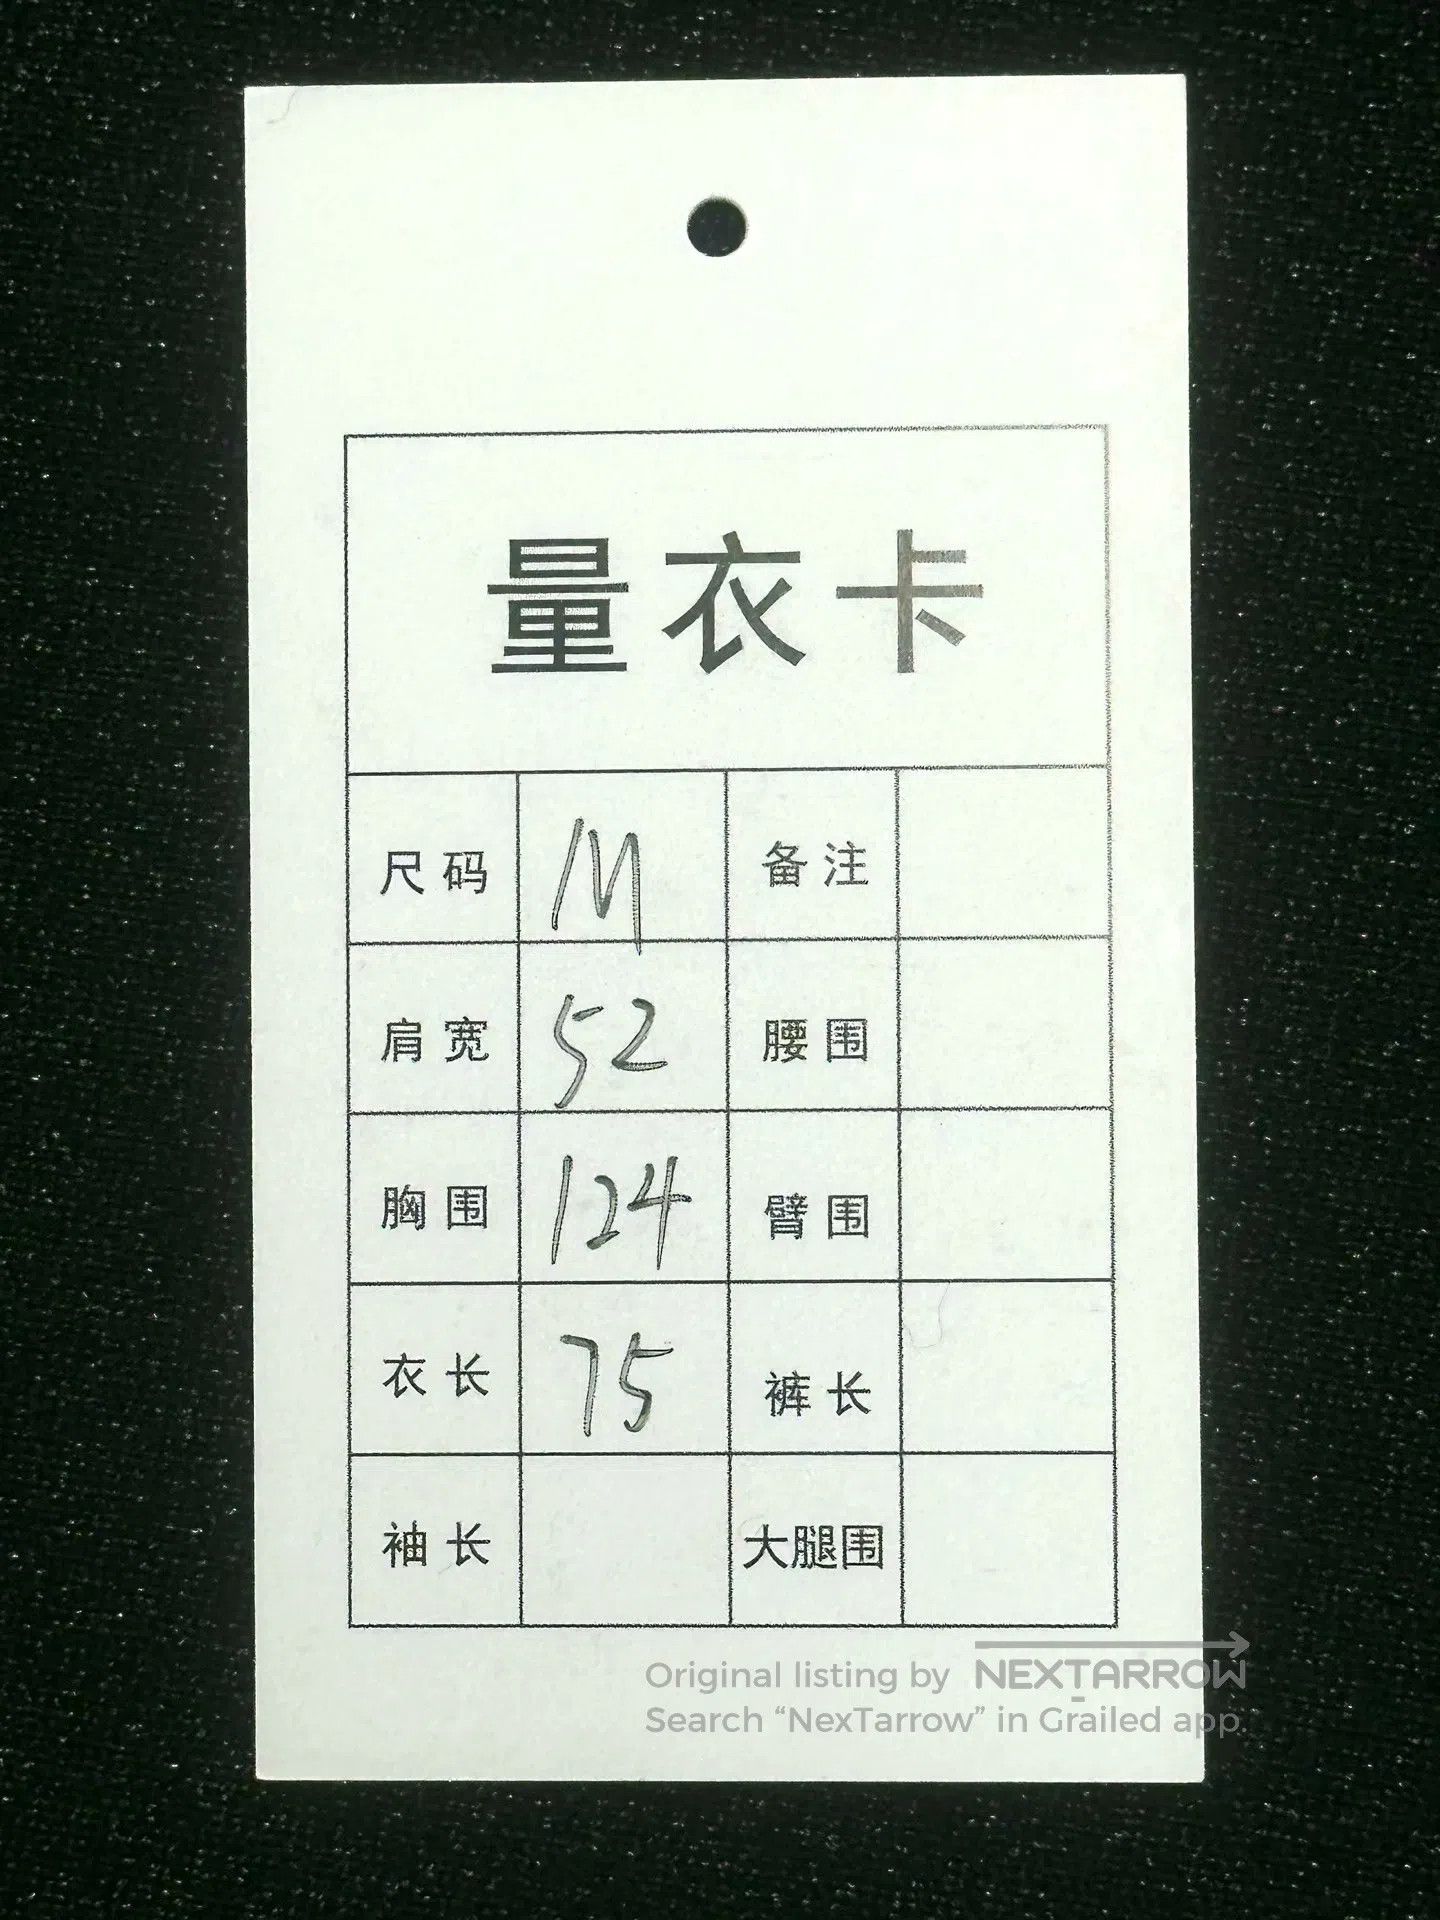 量衣卡
尺码 M 备注
肩宽 52 腰围
胸围 124 臂围
衣长 75 裤长
袖长 大腿围
Original listing by NEXTARROW
Search “NexTarrow” in Grailed app.